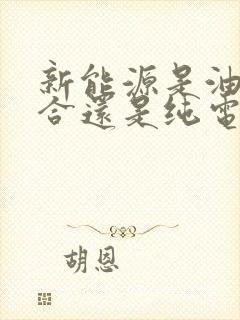 新能源是油
合還是纯電
胡恩